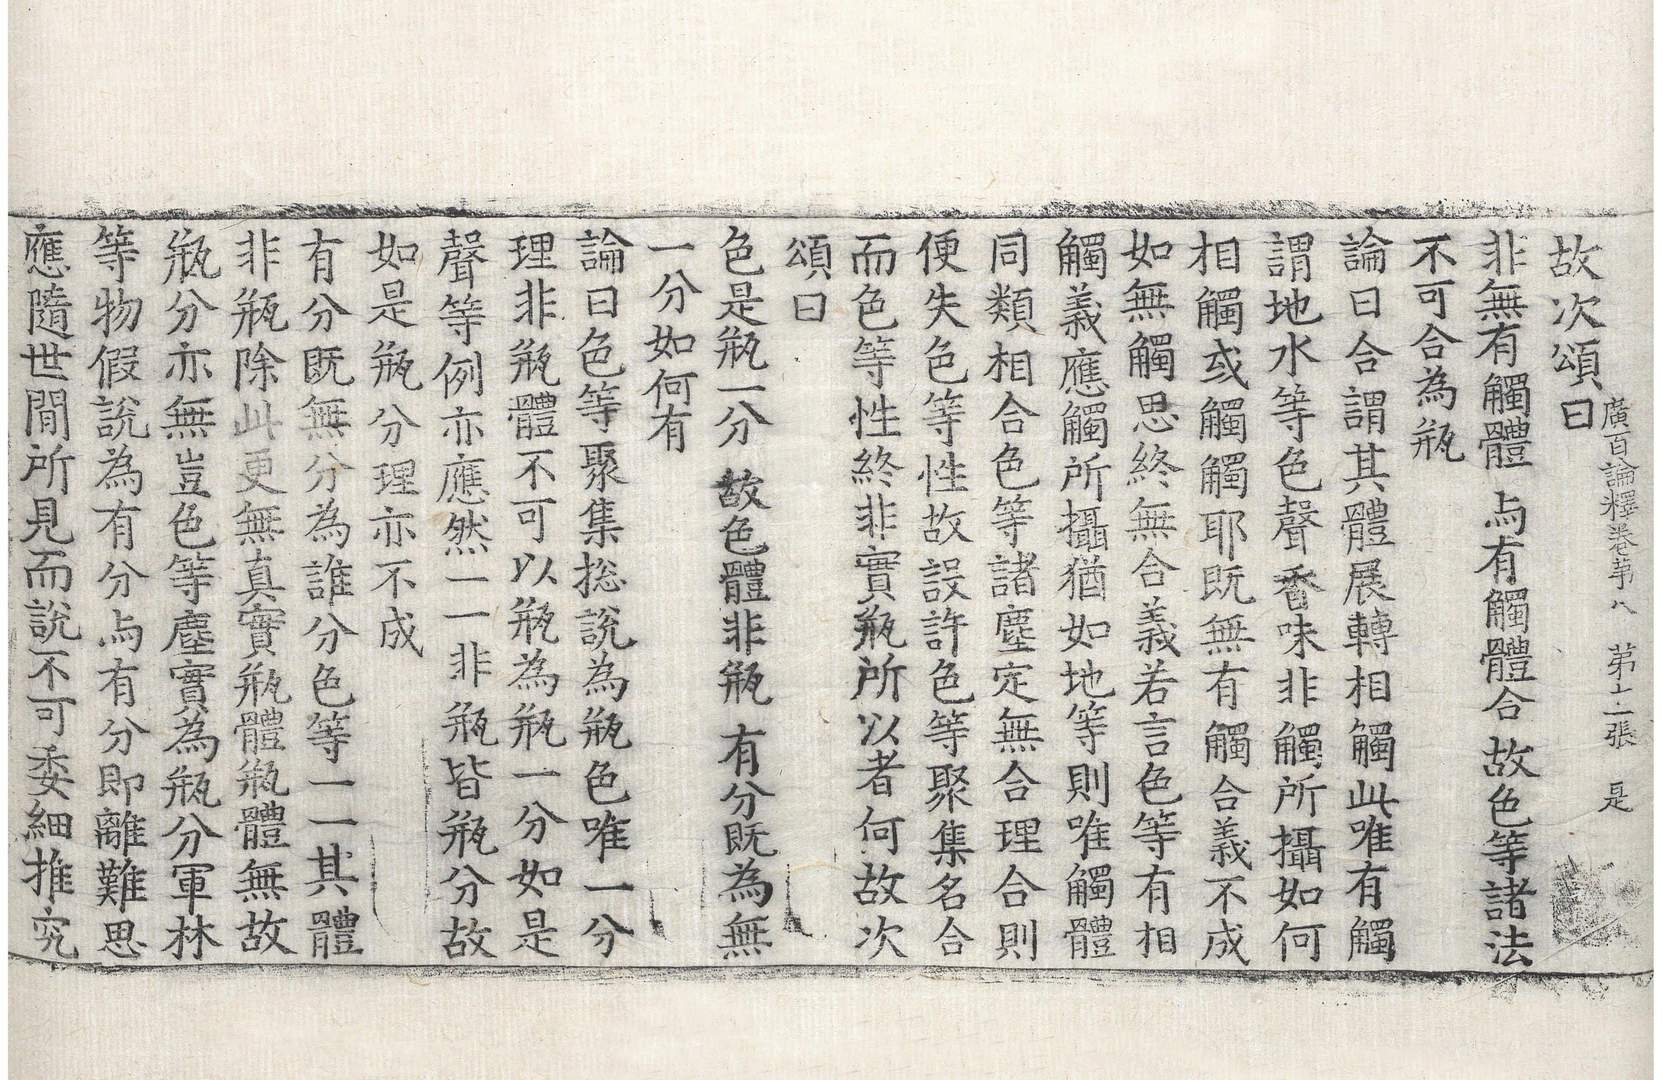 廣百論釋卷苐八 苐十二張 是
故次頌曰
非無有觸體 与有觸體合 故色等諸法
不可合為瓶
論曰合謂其體展轉相觸此唯有觸
謂地水等色聲香味非觸所攝如何
相觸或觸觸耶既無有觸合義不成
如無觸思終無合義若言色等有相
觸義應觸所攝猶如地等則唯觸體
同類相合色等諸塵定無合理合則
便失色等性故設許色等聚集名合
而色等性終非實瓶所以者何故次
頌曰
色是瓶一分 故色體非瓶 有分既為無
一分如何有
論曰色等聚集捴說為瓶色唯一分
理非瓶體不可以瓶為瓶一分如是
聲等例亦應然一一非瓶皆瓶分故
如是瓶分理亦不成
有分既無分為誰分色等一一其體
非瓶除此更無真實瓶體瓶體無故
瓶分亦無豈色等塵實為瓶分軍林
等物假說為有分与有分即離難思
應隨世間所見而說不可委細推究